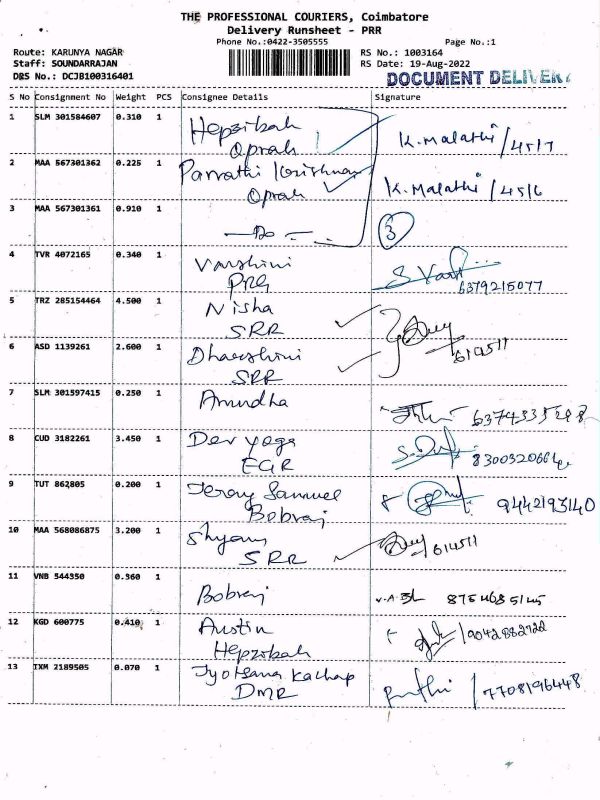 THE PROFESSIONAL COURIERS, Coimbatore
Delivery Runsheet - PRR
Phone No.:0422-3505555
Page No.:1
Route: KARUNYA NAGAR
RS No.: 1003164
Staff: SOUNDARRAJAN
RS Date: 19-Aug-2022
D&S No.: DCJB100316401
DOCUMENT DELIVER
S No Consignment No Weight PCS Consignee Details Signature
1 SLM 301584607 0.310 1 Hepzibah
Oprah K. Malathi /4517
2 MAA 567301362 0.225 1 Parvathi Krishnan
Oprah K. Malathi /4516
3 MAA 567301361 0.910 1 -Do- 3
4 TVR 4072165 0.340 1 Varshini
PRG 6379215077
5 TRZ 285154464 4.500 1 Nisha
SRR
6 ASD 1139261 2.600 1 Dharshini
SRR 614511
7 SLM 301597415 0.250 1 Amudha 6374335298
8 CUD 3182261 3.450 1 Dev yoga
EGR 8300320664
9 TUT 862805 0.200 1 Jeray Samuel
Bobraj 9442193140
10 MAA 568086875 3.200 1 Shyam
SRR 614511
11 VNB 544350 0.360 1 Bobraj 8754685145
12 KGD 600775 0.410 1 Austin
Hepzibah /9042882722
13 IXM 2189505 0.070 1 Jyotsana Kachap
DMR /7708196448